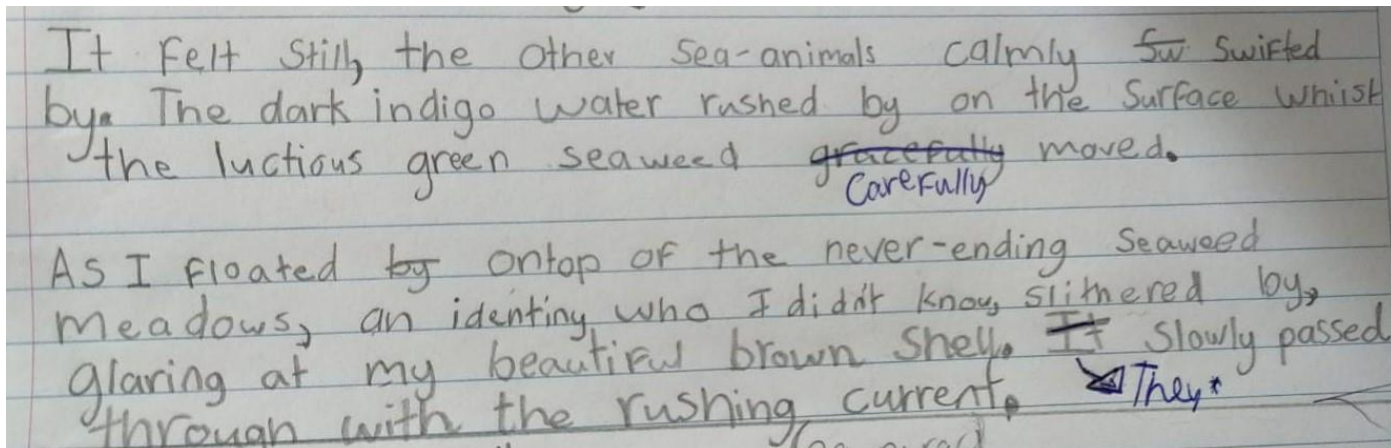 It Felt Still, the other Sea-animals calmly Sw Swifted
by. The dark indigo water rushed by on the Surface whilst
the luctious green seaweed gracefully moved.
Carefully
As I Floated by ontop of the never-ending Seaweed
meadows, an identiny who I didn't know, slithered by,
glaring at my beautiful brown Shell. It Slowly passed
They*
through with the rushing current.